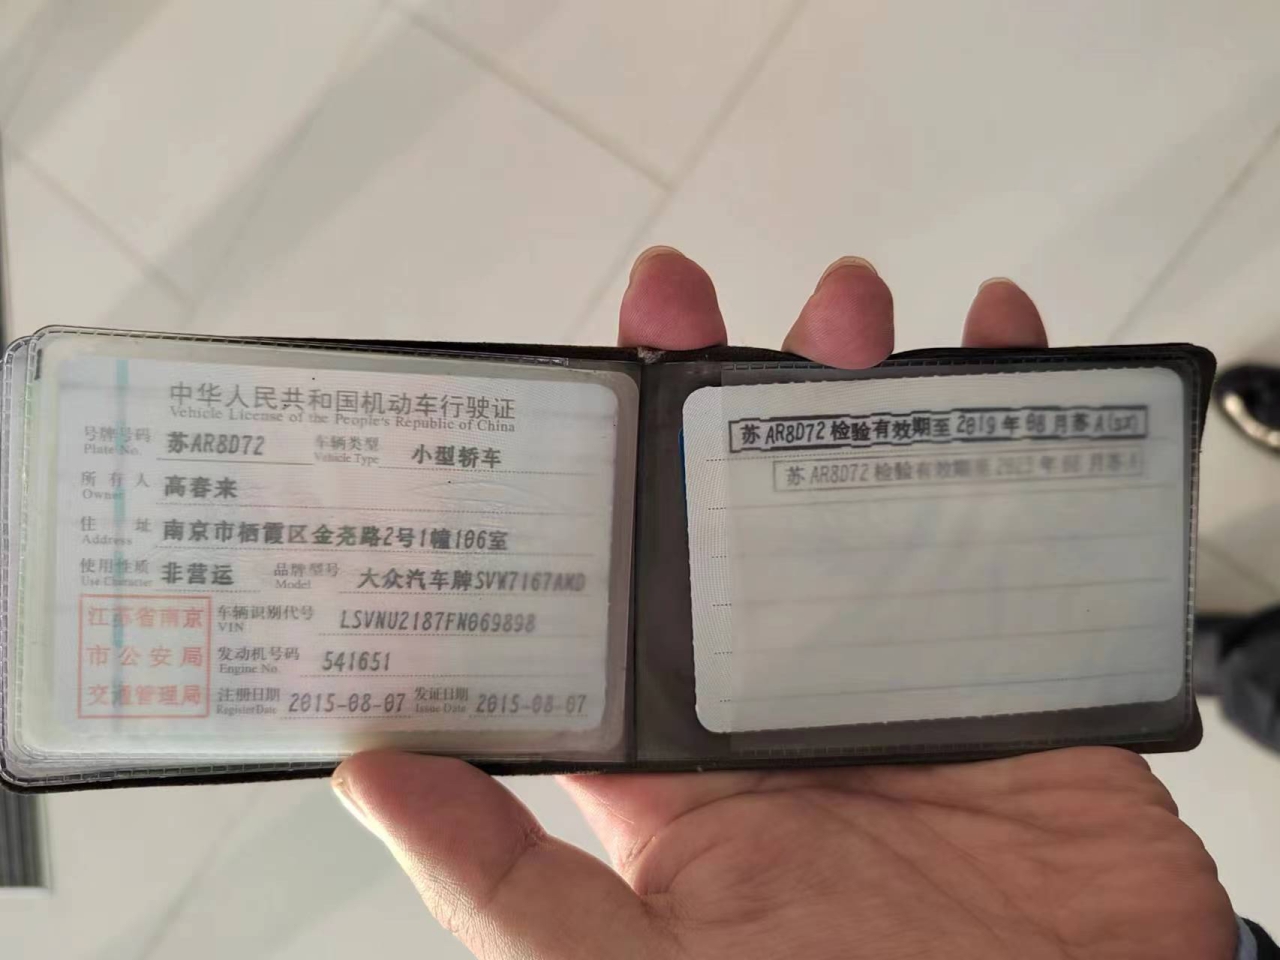 中华人民共和国机动车行驶证
Vehicle License of the People's Republic of China
号牌号码 苏AR8D72 车辆类型 小型轿车
Plate No. Vehicle Type
所有人 高春来
Owner
住址 南京市栖霞区金尧路2号1幢106室
Address
使用性质 非营运 品牌型号 大众汽车牌SVW7167AMD
Use Character Model
江苏省南京
市公安局
交通管理局
车辆识别代号 LSVNU2187FN069898
VIN
发动机号码 541651
Engine No.
注册日期 2015-08-07 发证日期 2015-08-07
Register Date Issue Date
苏AR8D72检验有效期至2019年08月苏A(sx)
苏AR8D72检验有效期至 年 月苏A